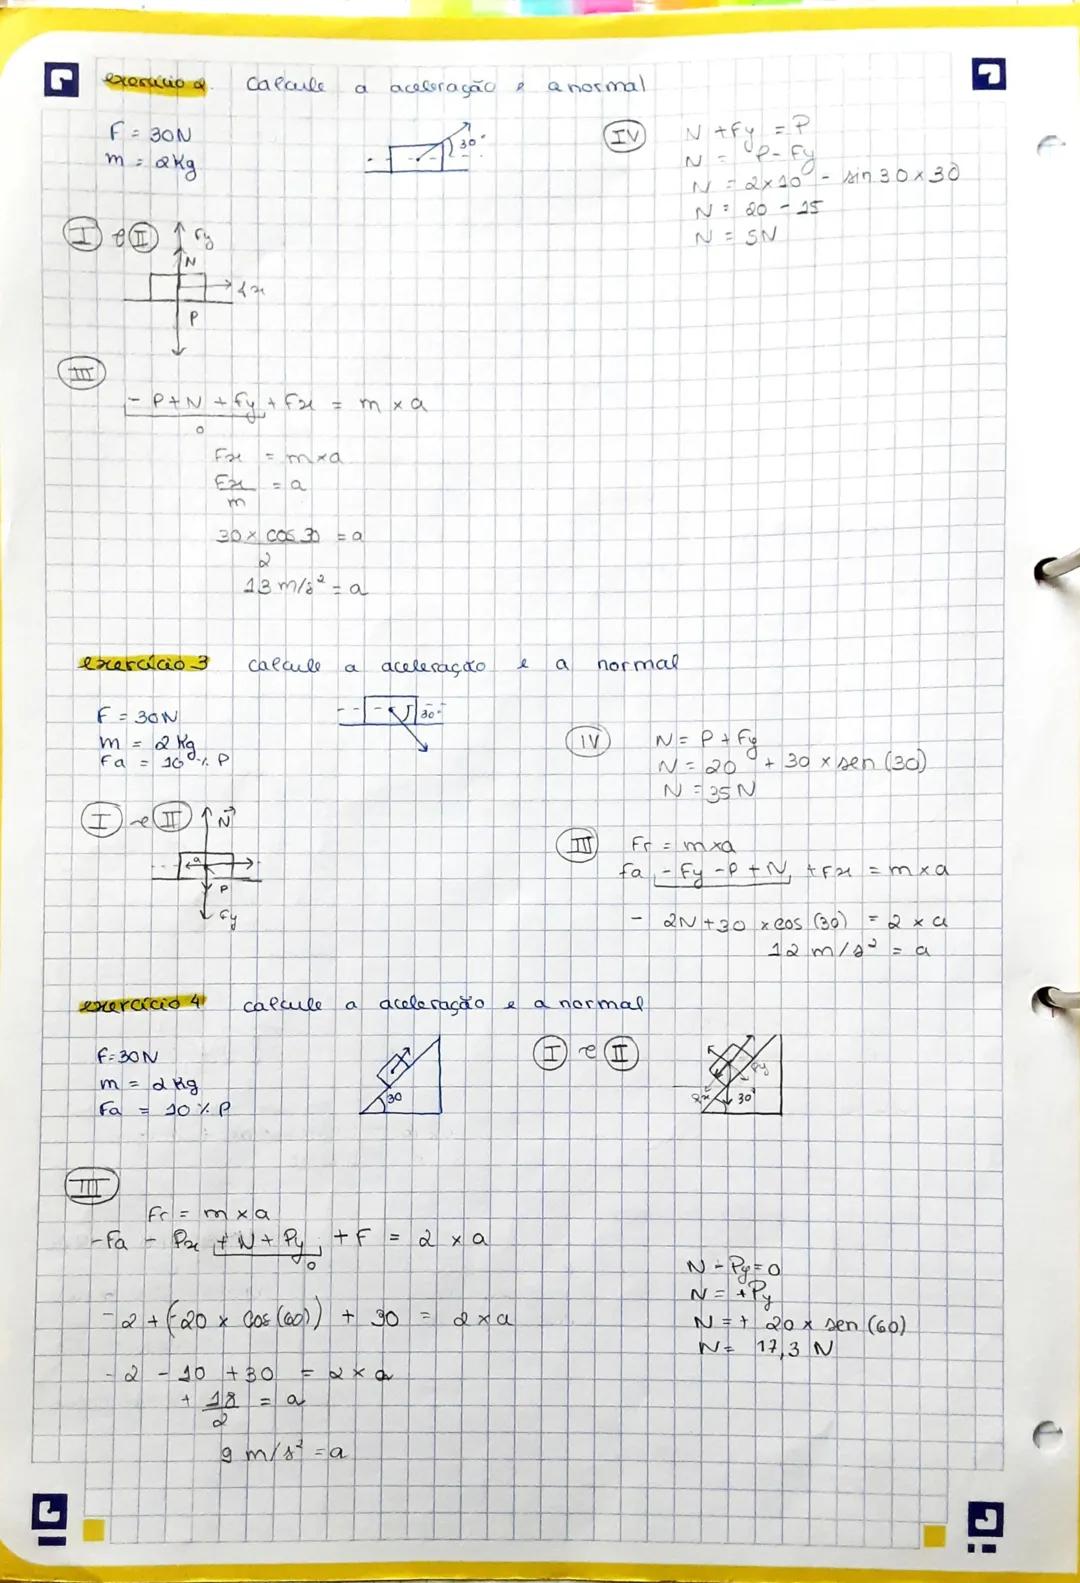 exercício 2. Calcule a aceleração e a normal
F = 30N
m = 2kg
30°
I e II
Fy
N
fx
P
III
- P+N + Fy + Fx = m x a
0
Fx = mxa
Fx = a
m
30 x cos 30 = a
2
13 m/s² = a
IV
N + Fy = P
N = P - Fy
N = 2x10 - sin 30 x 30
N = 20 - 15
N = 5N
exercício 3 calcule a aceleração e a normal
F = 30N
m = 2 kg
Fa = 10 % P
30°
I e II
N
a
P
Fy
IV
N = P + Fy
N = 20 + 30 x sen (30)
N = 35 N
III
Fr = mxa
fa - Fy - P + N, + Fx = m x a
- 2N + 30 x cos (30) = 2 x a
12 m/s² = a
exercício 4 calcule a aceleração e a normal
F=30N
m = 2 kg
Fa = 10 % P
30
I e II
Py
Px
30°
III
Fr = m x a
-Fa - Px + N + Py, + F = 2 x a
0
- 2 + (-20 x cos (60)) + 30 = 2 x a
- 2 - 10 + 30 = 2 x a
+ 18 = a
2
9 m/s² = a
N - Py = 0
N = + Py
N = + 20 x sen (60)
N = 17,3 N